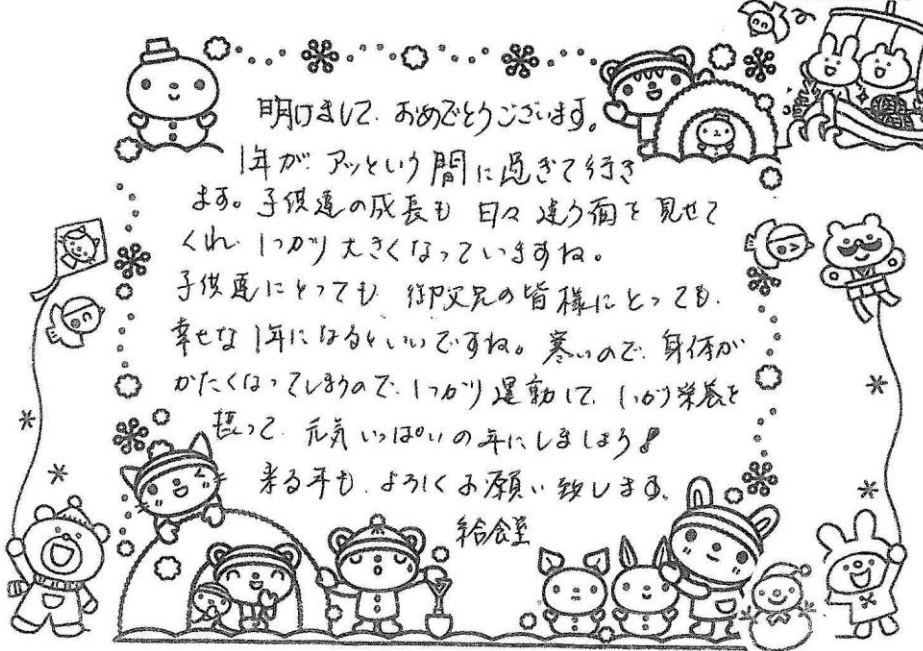 明けまして、おめでとうございます。
1年が、アッという間に過ぎて行き
ます。子供達の成長も 日々違う面を見せて
くれ しっかり大きくなっていますね。
子供達にとっても、御父兄の皆様にとっても、
幸せな1年になるといいですね。寒いので、身体が
かたくなってしまうので、しっかり運動して、しっかり栄養を
摂って、元気いっぱいの年にしましょう!
来る年も、よろしくお願い致します。
給食室